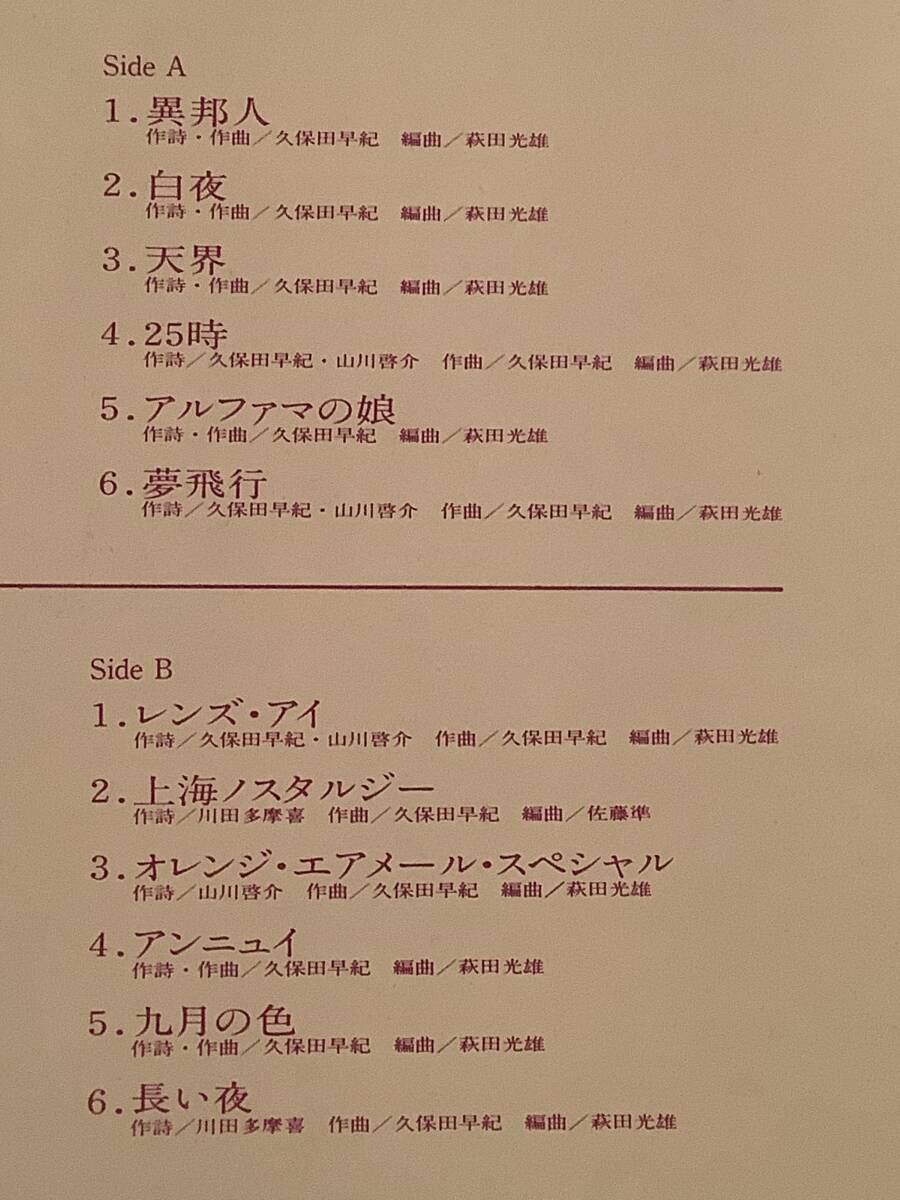 Side A
1.異邦人
作詩・作曲／久保田早紀　編曲／萩田光雄
2.白夜
作詩・作曲／久保田早紀　編曲／萩田光雄
3.天界
作詩・作曲／久保田早紀　編曲／萩田光雄
4.25時
作詩／久保田早紀・山川啓介　作曲／久保田早紀　編曲／萩田光雄
5.アルファマの娘
作詩・作曲／久保田早紀　編曲／萩田光雄
6.夢飛行
作詩／久保田早紀・山川啓介　作曲／久保田早紀　編曲／萩田光雄
Side B
1.レンズ・アイ
作詩／久保田早紀・山川啓介　作曲／久保田早紀　編曲／萩田光雄
2.上海ノスタルジー
作詩／川田多摩喜　作曲／久保田早紀　編曲／佐藤準
3.オレンジ・エアメール・スペシャル
作詩／山川啓介　作曲／久保田早紀　編曲／萩田光雄
4.アンニュイ
作詩・作曲／久保田早紀　編曲／萩田光雄
5.九月の色
作詩・作曲／久保田早紀　編曲／萩田光雄
6.長い夜
作詩／川田多摩喜　作曲／久保田早紀　編曲／萩田光雄